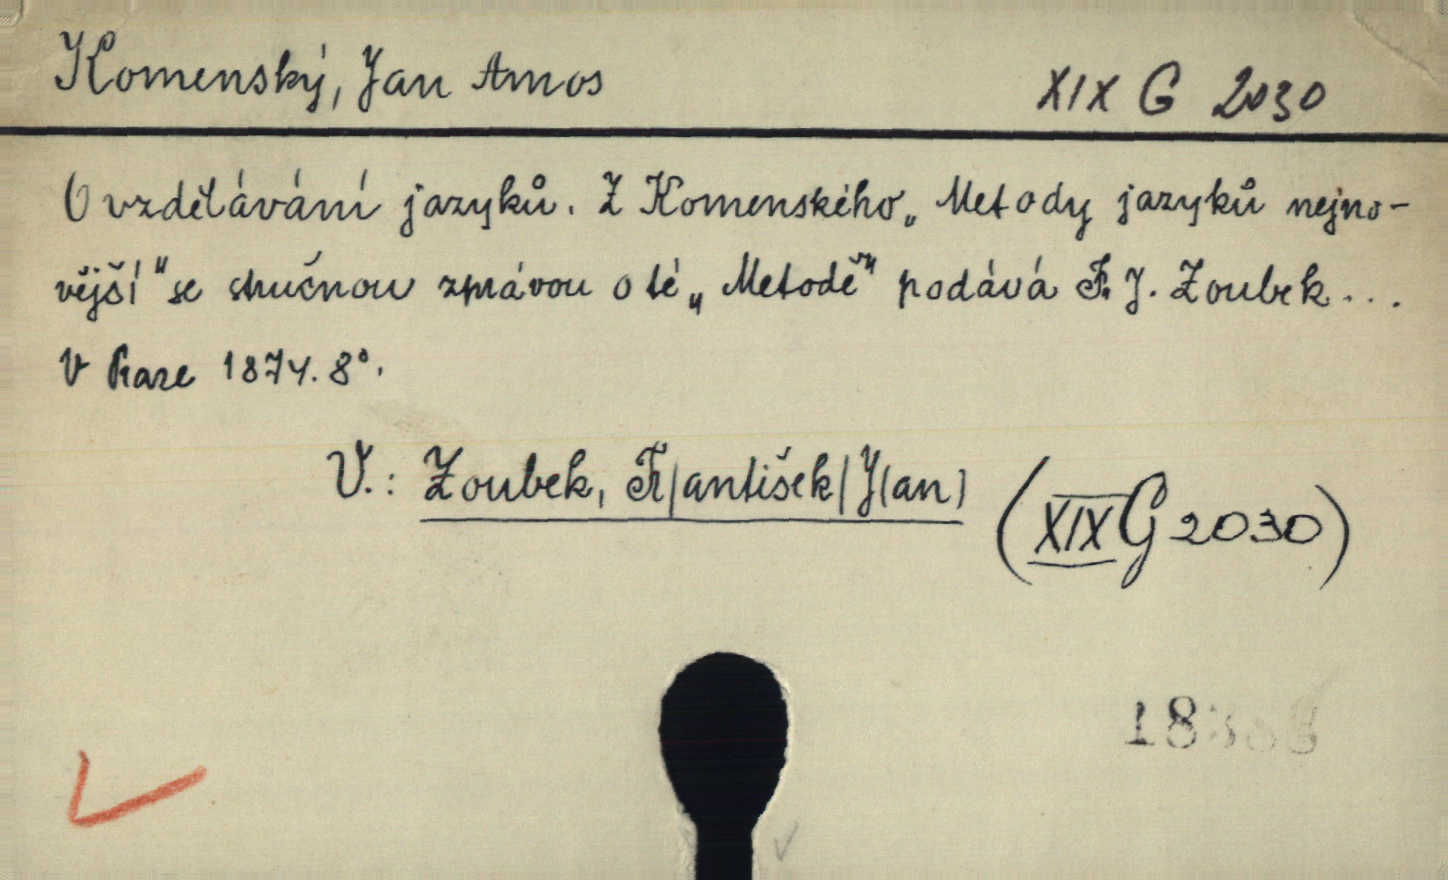 Komenský, Jan Amos XIX G 2030
O vzdělávání jazyků. Z Komenského „Metody jazyků nejno-
vější" se stručnou zprávou o té „Metodě" podává Fr. J. Zoubek...
V Praze 1874. 8°.
V.: Zoubek, Fr/antišek/ J(an)
(XIX G 2030)